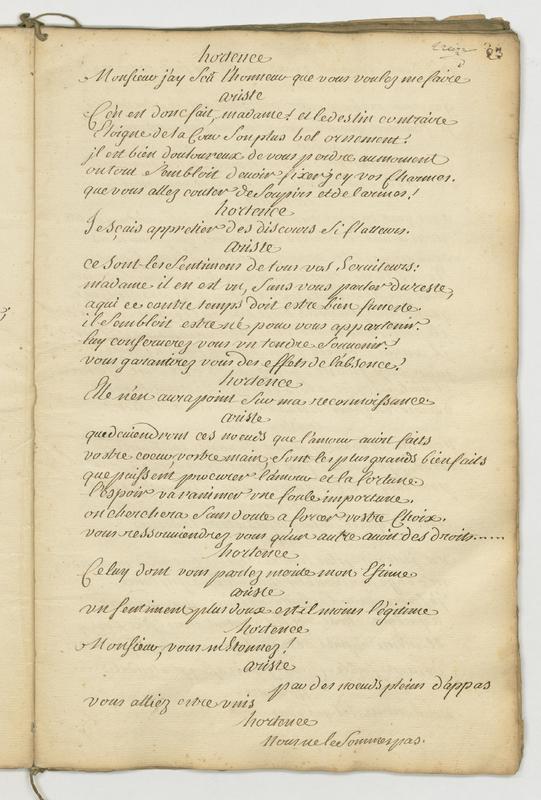 hortence
Monsieur j'ay sçu l'honneur que vous voulez me faire
ariste
C'en est donc fait, madame! et le destin contraire
Eloigne de la Cour son plus bel ornement!
jl est bien douloureux de vous perdre au moment
ou tout sembloit devoir fixer jcy vos Charmes.
que vous allez couter de soupirs et de larmes!
hortence
Je sçais apprecier des discours si flatteurs.
ariste
ce sont les sentimens de tous vos serviteurs:
madame il en est vn, sans vous parler du reste,
a qui ce contre temps doit estre bien funeste.
il sembloit estre né pour vous appartenir.
luy conserverez vous vn tendre souvenir?
vous garantirez vous des effets de l'absence?
hortence
Elle n'en aura point sur ma reconnoissance
ariste
que deviendront ces noeuds que l'amour avoit faits
vostre coeur, vostre main, sont les plus grands bienfaits
que puissent procurer l'amour et la fortune
l'espoir va ranimer vne foule importune.
on cherchera sans doute a forcer vostre Choix.
vous ressouviendrez vous qu'un autre avoit des droits......
hortence
Celuy dont vous parlez merite mon Estime
ariste
vn sentiment plus doux est il moins légitime
hortence
Monsieur, vous m'Etonnez!
ariste
par des noeuds pleins d'appas
vous alliez estre vnis
hortence
Nous ne le sommes pas.